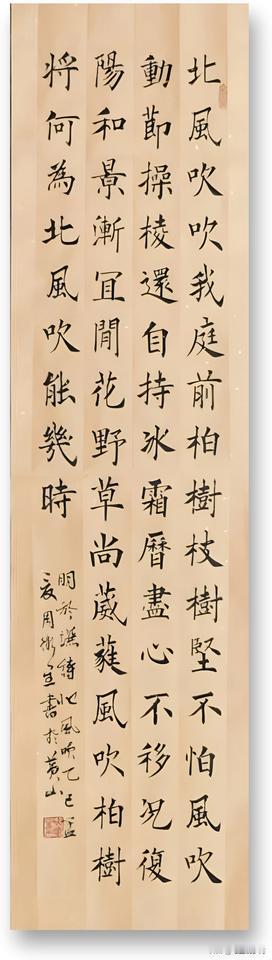 北風吹吹我庭前柏樹枝樹堅不怕風吹
動節操棱還自持冰霜曆盡心不移况復
陽和景漸宜閒花野草尚葳蕤風吹柏樹
將何為北風吹能幾時
明於謙詩北風吹乙巳孟
夏周彬生書於黃山